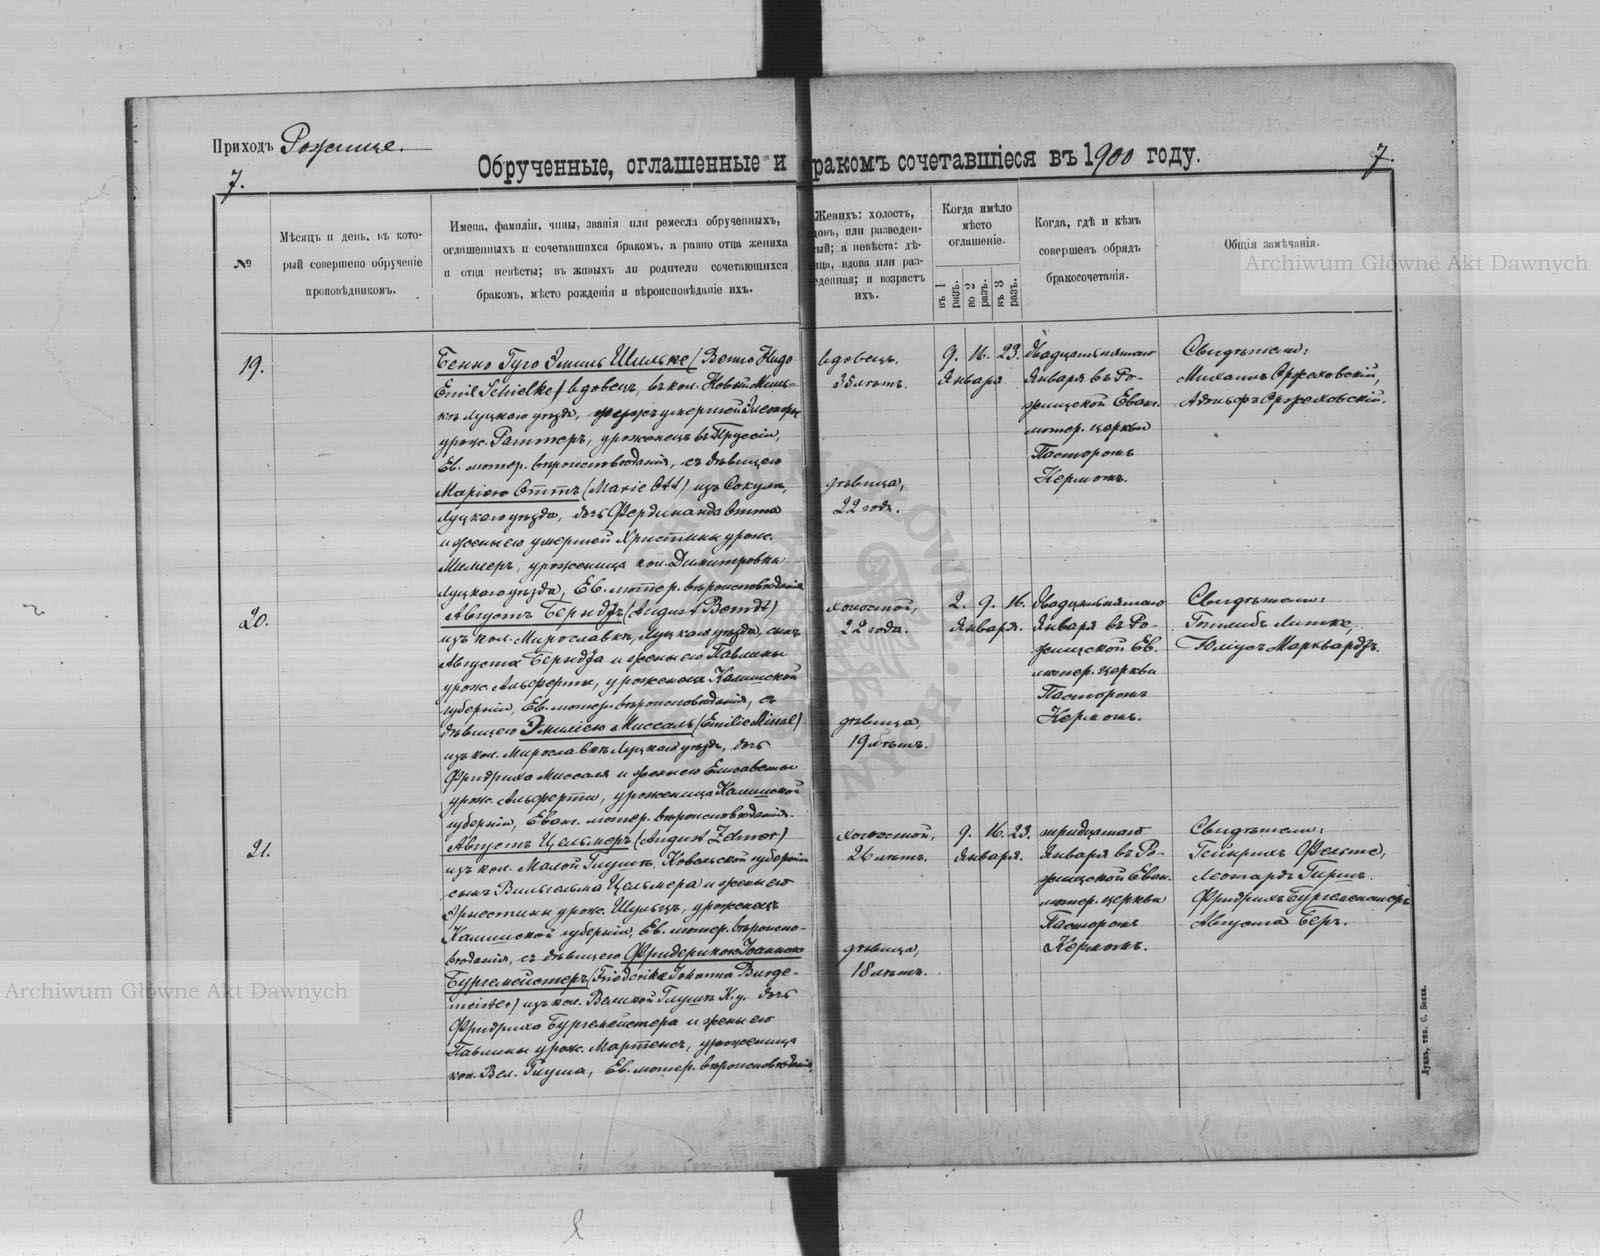 Приходъ Рожище.
Обрученные, оглашенные и бракомъ сочетавшіеся въ 1900 году.
7.
7.
№
Мѣсяцъ и день, въ кото-
рый совершено обрученіе
проповѣдникомъ.
Имена, фамиліи, чины, званія или ремесла обрученныхъ,
оглашенныхъ и сочетавшихся бракомъ, а равно отца жениха
и отца невѣсты; въ живыхъ ли родители сочетающихся
бракомъ, мѣсто рожденія и вѣроисповѣданіе ихъ.
Женихъ: холостъ,
вдовъ, или разведен-
ный; а невѣста: дѣ-
вица, вдова или раз-
веденная; и возрастъ
ихъ.
Когда имѣло
мѣсто
оглашеніе.
въ 1 разъ.
во 2 разъ.
въ 3 разъ.
Когда, гдѣ и кѣмъ
совершенъ обрядъ
бракосочетанія.
Общія замѣчанія.
19.
Бенно Гуго Эмиль Шильке (Benno Hugo
Emil Schielke) вдовецъ, въ кол. Новый
Луцкаго уѣзда, умершей Элеоноры
урож. Раттеръ, уроженецъ въ Пруссіи,
Ев. лютер. вѣроисповѣданія, съ дѣвицею
Маріею Оттъ (Marie Ott) изъ Сокуля,
Луцкаго уѣзда, дочь Фердинанда Отта
и жены его умершей Христины урож.
Миллеръ, уроженица кол. Димитровка
Луцкаго уѣзда, Ев. лютер. вѣроисповѣданія
вдовецъ.
35 лѣтъ.
дѣвица,
22 года.
9. 16. 23.
Января.
двадцатьпятаго
Января въ Ро-
жищской Еванг.
лютер. церкви
Пасторомъ
Кермомъ.
Свидѣтели:
Михаилъ Оржеховскій,
Адольфъ Оржеховскій.
20.
Августъ Берндтъ (August Berndt)
изъ кол. Мирославки, Луцкаго уѣзда, сынъ
Августа Берндта и жены его Павлины
урож. Альфертъ, уроженецъ Калишской
губерніи, Ев. лютер. вѣроисповѣданія, съ
дѣвицею Эмиліею Миссаль (Emilie Missal)
изъ кол. Мирославки Луцкаго уѣзда, дочь
Фридриха Миссаля и жены его Елисаветы
урож. Альфертъ, уроженица Калишской
губерніи, Еванг. лютер. вѣроисповѣданія.
холостой,
22 года.
дѣвица,
19 лѣтъ.
2. 9. 16.
Января.
двадцатьпятаго
Января въ Ро-
жищской Ев.
лютер. церкви
Пасторомъ
Кермомъ.
Свидѣтели:
Готлибъ Литке,
Юліусъ Марквардтъ.
21.
Августъ Цельмеръ (August Zelmer)
изъ кол. Малой Глуши, Ковельской губерніи
сынъ Вильгельма Цельмера и жены его
Эрнестины урож. Шульцъ, уроженецъ
Калишской губерніи, Ев. лютер. вѣроиспо-
вѣданія, съ дѣвицею Фридерикою Іоанною
Бургемейстеръ (Friederike Johanna Burge-
meister) изъ кол. Великой Глуши К. у. дочь
Фридриха Бургемейстера и жены его
Павлины урож. Мартенсъ, уроженица
кол. Вел. Глуша, Ев. лютер. вѣроисповѣданія.
холостой,
26 лѣтъ.
дѣвица,
18 лѣтъ.
9. 16. 23.
Января.
тридцатаго
Января въ Ро-
жищской Еван.
лютер. церкви
Пасторомъ
Кермомъ.
Свидѣтели:
Гейнрихъ Фельске,
Леонардъ Гиршъ.
Фридрихъ Бургемейстеръ
Августъ Беръ.
Луцкъ, тип. С. Бокка.
Archiwum Główne Akt Dawnych
Archiwum Główne Akt Dawnych